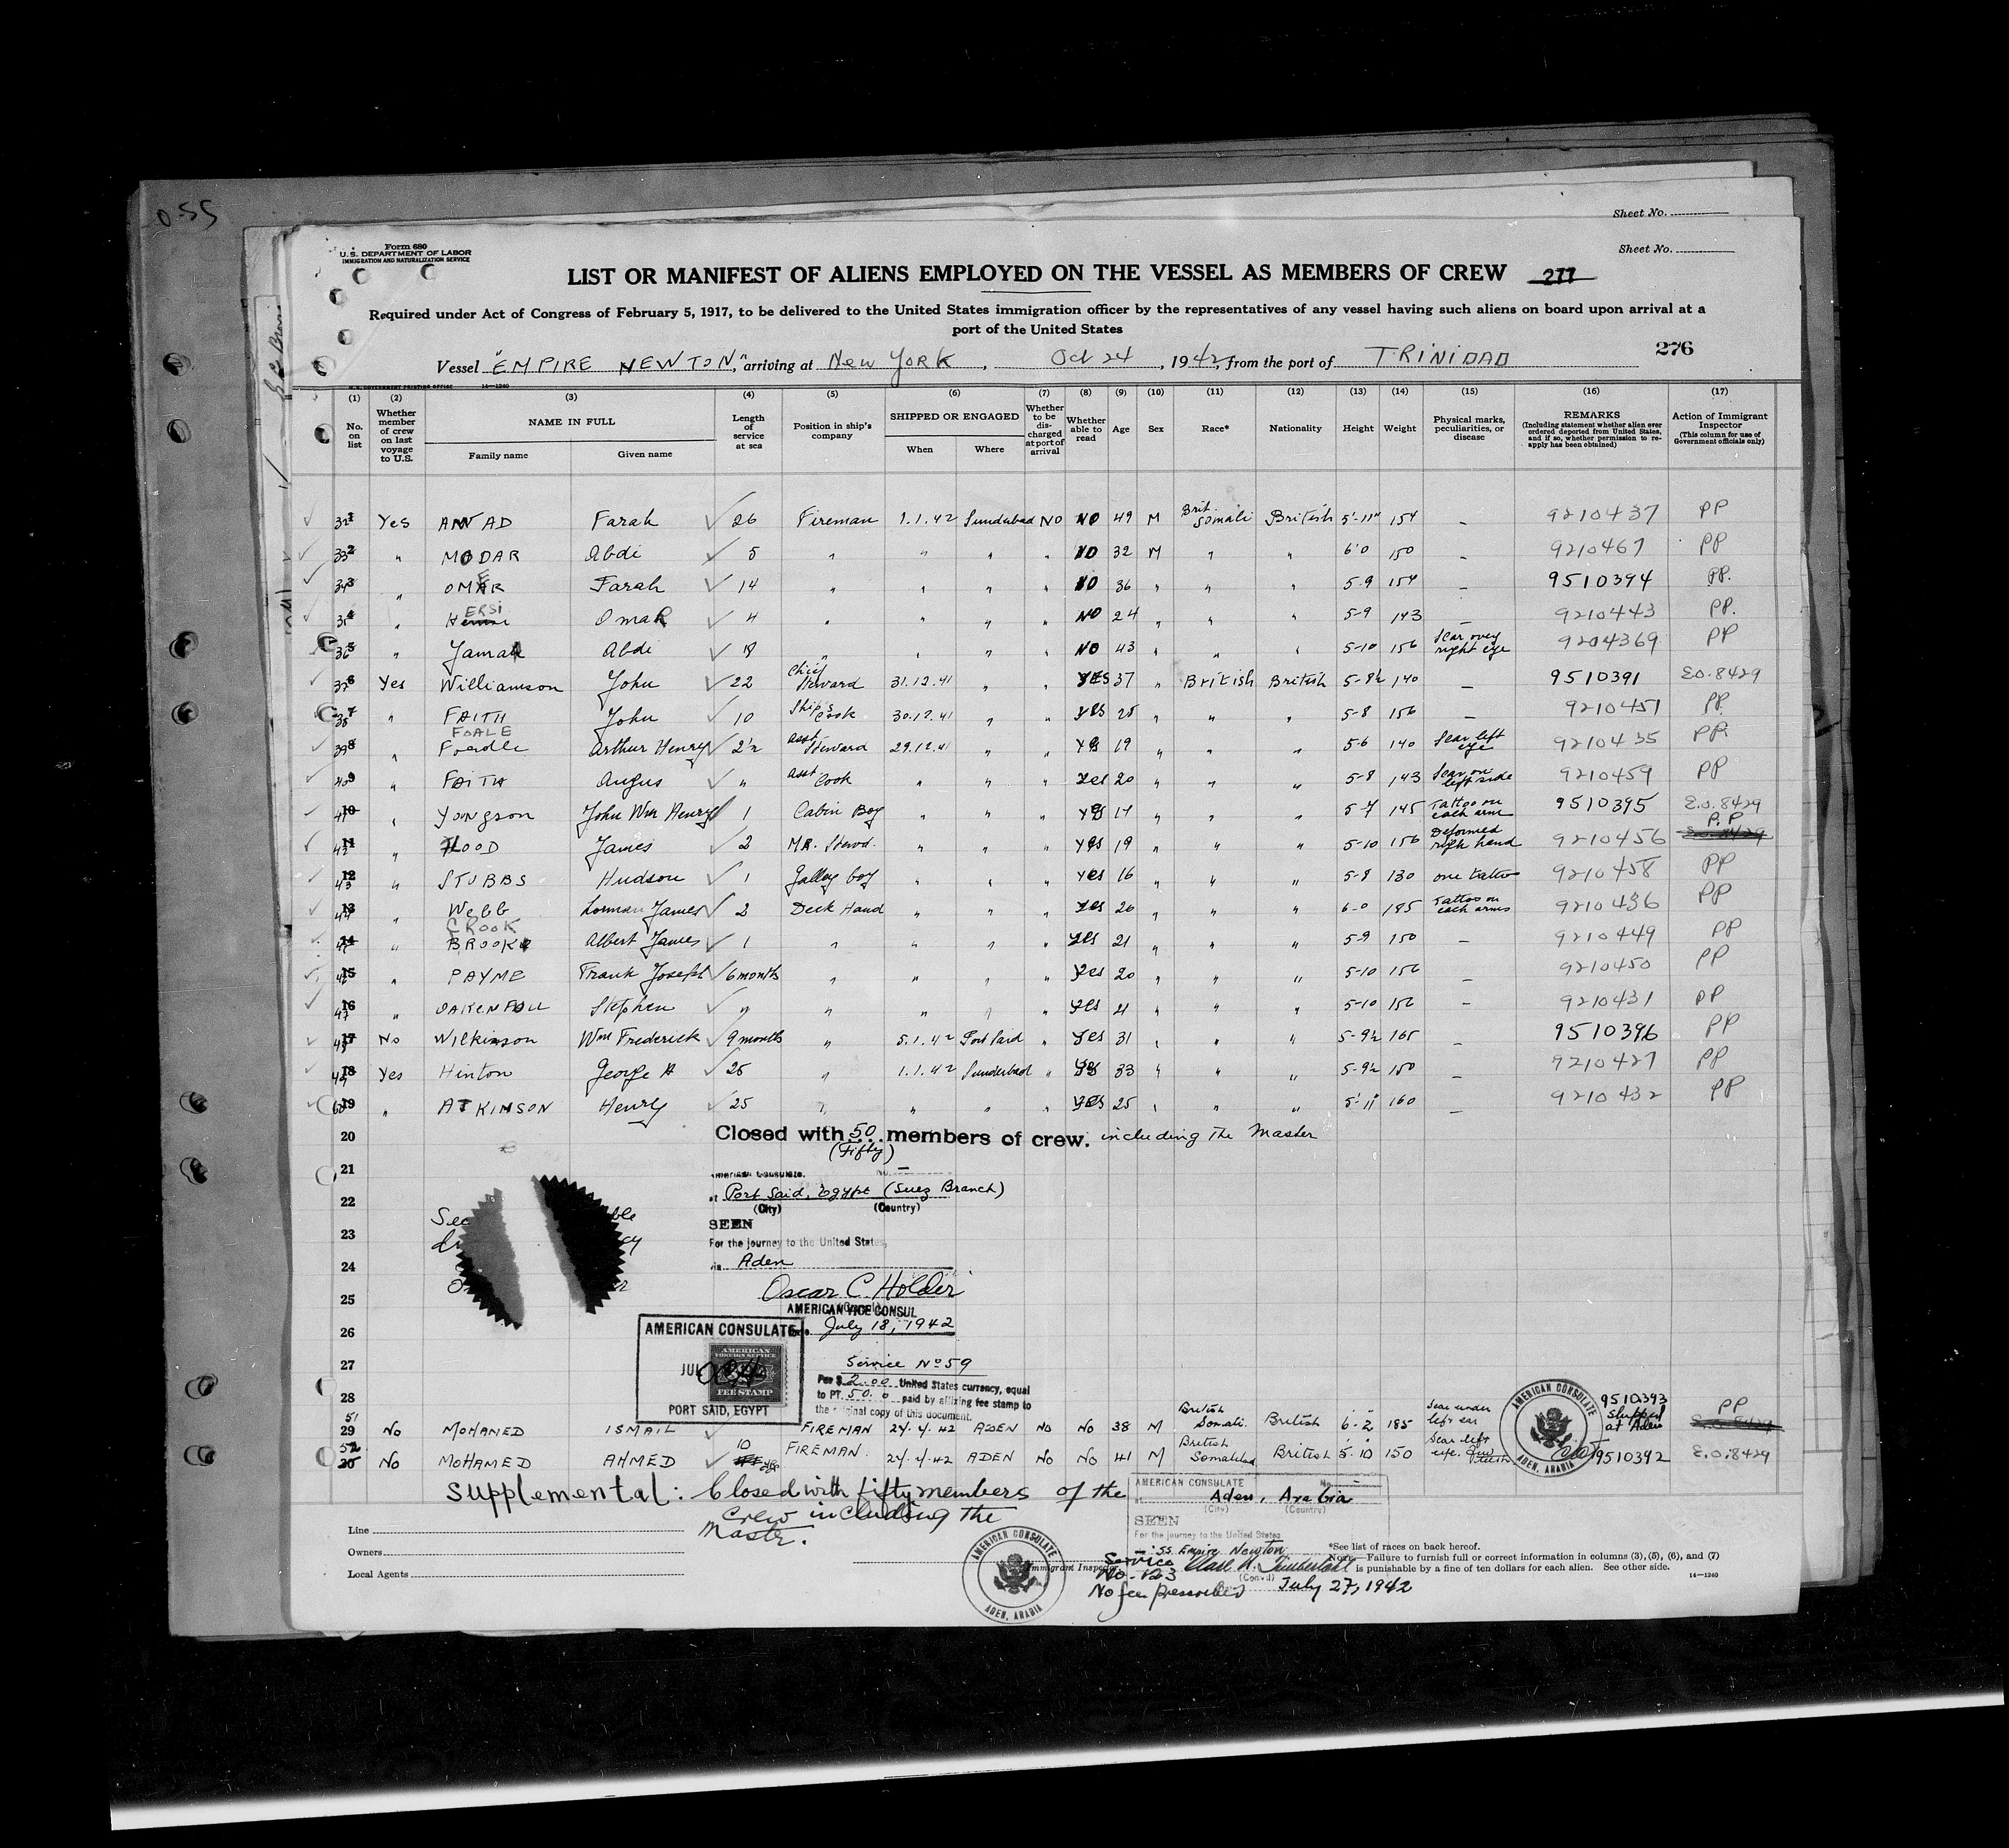 0-55
Sheet No.
Form 680
U.S. DEPARTMENT OF LABOR
IMMIGRATION AND NATURALIZATION SERVICE
Sheet No.
LIST OR MANIFEST OF ALIENS EMPLOYED ON THE VESSEL AS MEMBERS OF CREW 277
Required under Act of Congress of February 5, 1917, to be delivered to the United States immigration officer by the representatives of any vessel having such aliens on board upon arrival at a
port of the United States
276
Vessel "EMPIRE NEWTON", arriving at New YORK, Oct 24, 1942, from the port of TRINIDAD
U.S. GOVERNMENT PRINTING OFFICE 14—1240
(1) No. on list (2) Whether member of crew on last voyage to U.S. (3) NAME IN FULL Family name Given name (4) Length of service at sea (5) Position in ship's company (6) SHIPPED OR ENGAGED When Where (7) Whether to be discharged at port of arrival (8) Whether able to read (9) Age (10) Sex (11) Race* (12) Nationality (13) Height (14) Weight (15) Physical marks, peculiarities, or disease (16) REMARKS (Including statement whether alien ever ordered deported from United States, and if so, whether permission to re-apply has been obtained) (17) Action of Immigrant Inspector (This column for use of Government officials only)
32 Yes AWAD Farah 26 Fireman 1.1.42 Sunderland NO NO 49 M Brit. Somali British 5'-11" 154 - 9210437 PP
33 " MODAR Abdi 5 " " " " NO 32 M " " 6'0 150 - 9210467 PP
34 " OMER Farah 14 " " " " NO 36 " " " 5-9 154 - 9510394 PP.
35 " HERSI Omar 4 " " " " NO 24 " " " 5-9 143 - 9210443 PP.
36 " Jama Abdi 18 " " " " NO 43 " " " 5-10 156 Scar over right eye 9204369 PP
37 Yes Williamson John 22 Chief Steward 31.12.41 " " YES 37 " British British 5-8½ 140 - 9510391 E.O. 8429
38 " FAITH John 10 Ship's Cook 30.12.41 " " yes 25 " " " 5-8 156 - 9210451 PP
39 " FOALE Arthur Henry 2½ Asst Steward 29.12.41 " " yes 19 " " " 5-6 140 Scar left eye 9210435 PP.
40 " FAITH Angus " Asst Cook " " " yes 20 " " " 5-8 143 Scar on left side 9210459 PP
10 " Youngson John Wm Henry 1 Cabin Boy " " " yes 17 " " " 5-7 145 Tattoo on each arm 9510395 E.O. 8429
11 " HOOD James 2 " " " yes 19 " " " 5-10 156 Deformed right hand 9210456 P.P E.O. 8429
12 43 " STUBBS Hudson 1 Galley boy " " " yes 16 " " " 5-8 130 one tattoo 9210458 PP
13 44 " Webb James 2 Deck Hand " " " yes 26 " " " 6-0 195 Tattoo on each arms 9210436 PP
14 " CROOK Albert James 1 " " " " yes 21 " " " 5-9 150 - 9210449 PP
15 " PAYNE Frank Joseph 6 months " " " " yes 20 " " " 5-10 156 - 9210450 PP
16 47 " OAKENFULL Stephen " " " " " yes 21 " " " 5-10 156 - 9210431 PP
17 No Wilkinson Wm Frederick 9 months " 5.1.42 Port Said " yes 31 " " " 5-9½ 165 - 9510396 PP
18 49 Yes Hinton George A 25 " 1.1.42 Sunderland " yes 33 " " " 5-9½ 150 - 9210427 PP
19 " ATKINSON Henry 25 " " " " yes 25 " " " 5'11" 160 - 9210432 PP
20 Closed with 50 members of crew. including The Master
(Fifty)
21 American Consulate. No. —
22 at Port Said, Egypt (Suez Branch)
(City) (Country)
23 SEEN
For the journey to the United States,
24 via Aden
25 Oscar C. Holder
AMERICAN VICE CONSUL
26 July 18, 1942
AMERICAN CONSULATE
JUL
AMERICAN FOREIGN SERVICE
FEE STAMP
PORT SAID, EGYPT
27 Service No 59
Fee $ 2.00 United States currency, equal
28 to PT. 50.0 paid by affixing fee stamp to
the original copy of this document.
51 29 No MOHAMED ISMAIL FIREMAN 24.4.42 ADEN No No 38 M British Somali. British 6-2 185 Scar under left ear 9510393 Shipped at Aden PP E.O. 8429
52 30 No MOHAMED AHMED 10 FIREMAN. 24.4.42 ADEN No No 41 M British British 5-10 150 Scar left eye. 9510392 E.O. 8429
AMERICAN CONSULATE ADEN, ARABIA
Supplemental: Closed with fifty members of the
Crew including the
Master.
AMERICAN CONSULATE No. —
Aden, Arabia
(City) (Country)
SEEN
For the journey to the United States
SS. Empire Newton
Service No. 123
No fee prescribed
July 27, 1942
Line
Owners
Local Agents
AMERICAN CONSULATE ADEN, ARABIA
Immigrant Inspector
*See list of races on back hereof.
NOTE—Failure to furnish full or correct information in columns (3), (5), (6), and (7)
is punishable by a fine of ten dollars for each alien. See other side.
14—1240